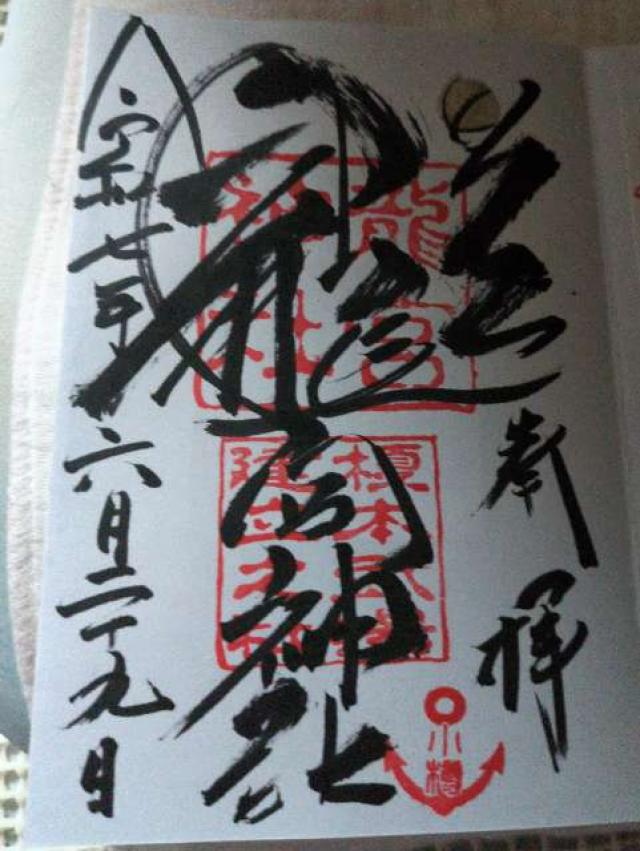 奉拝
龍宮神社
令和七年六月二十九日
龍宮
神社
榎本武揚
建立之社
小樽